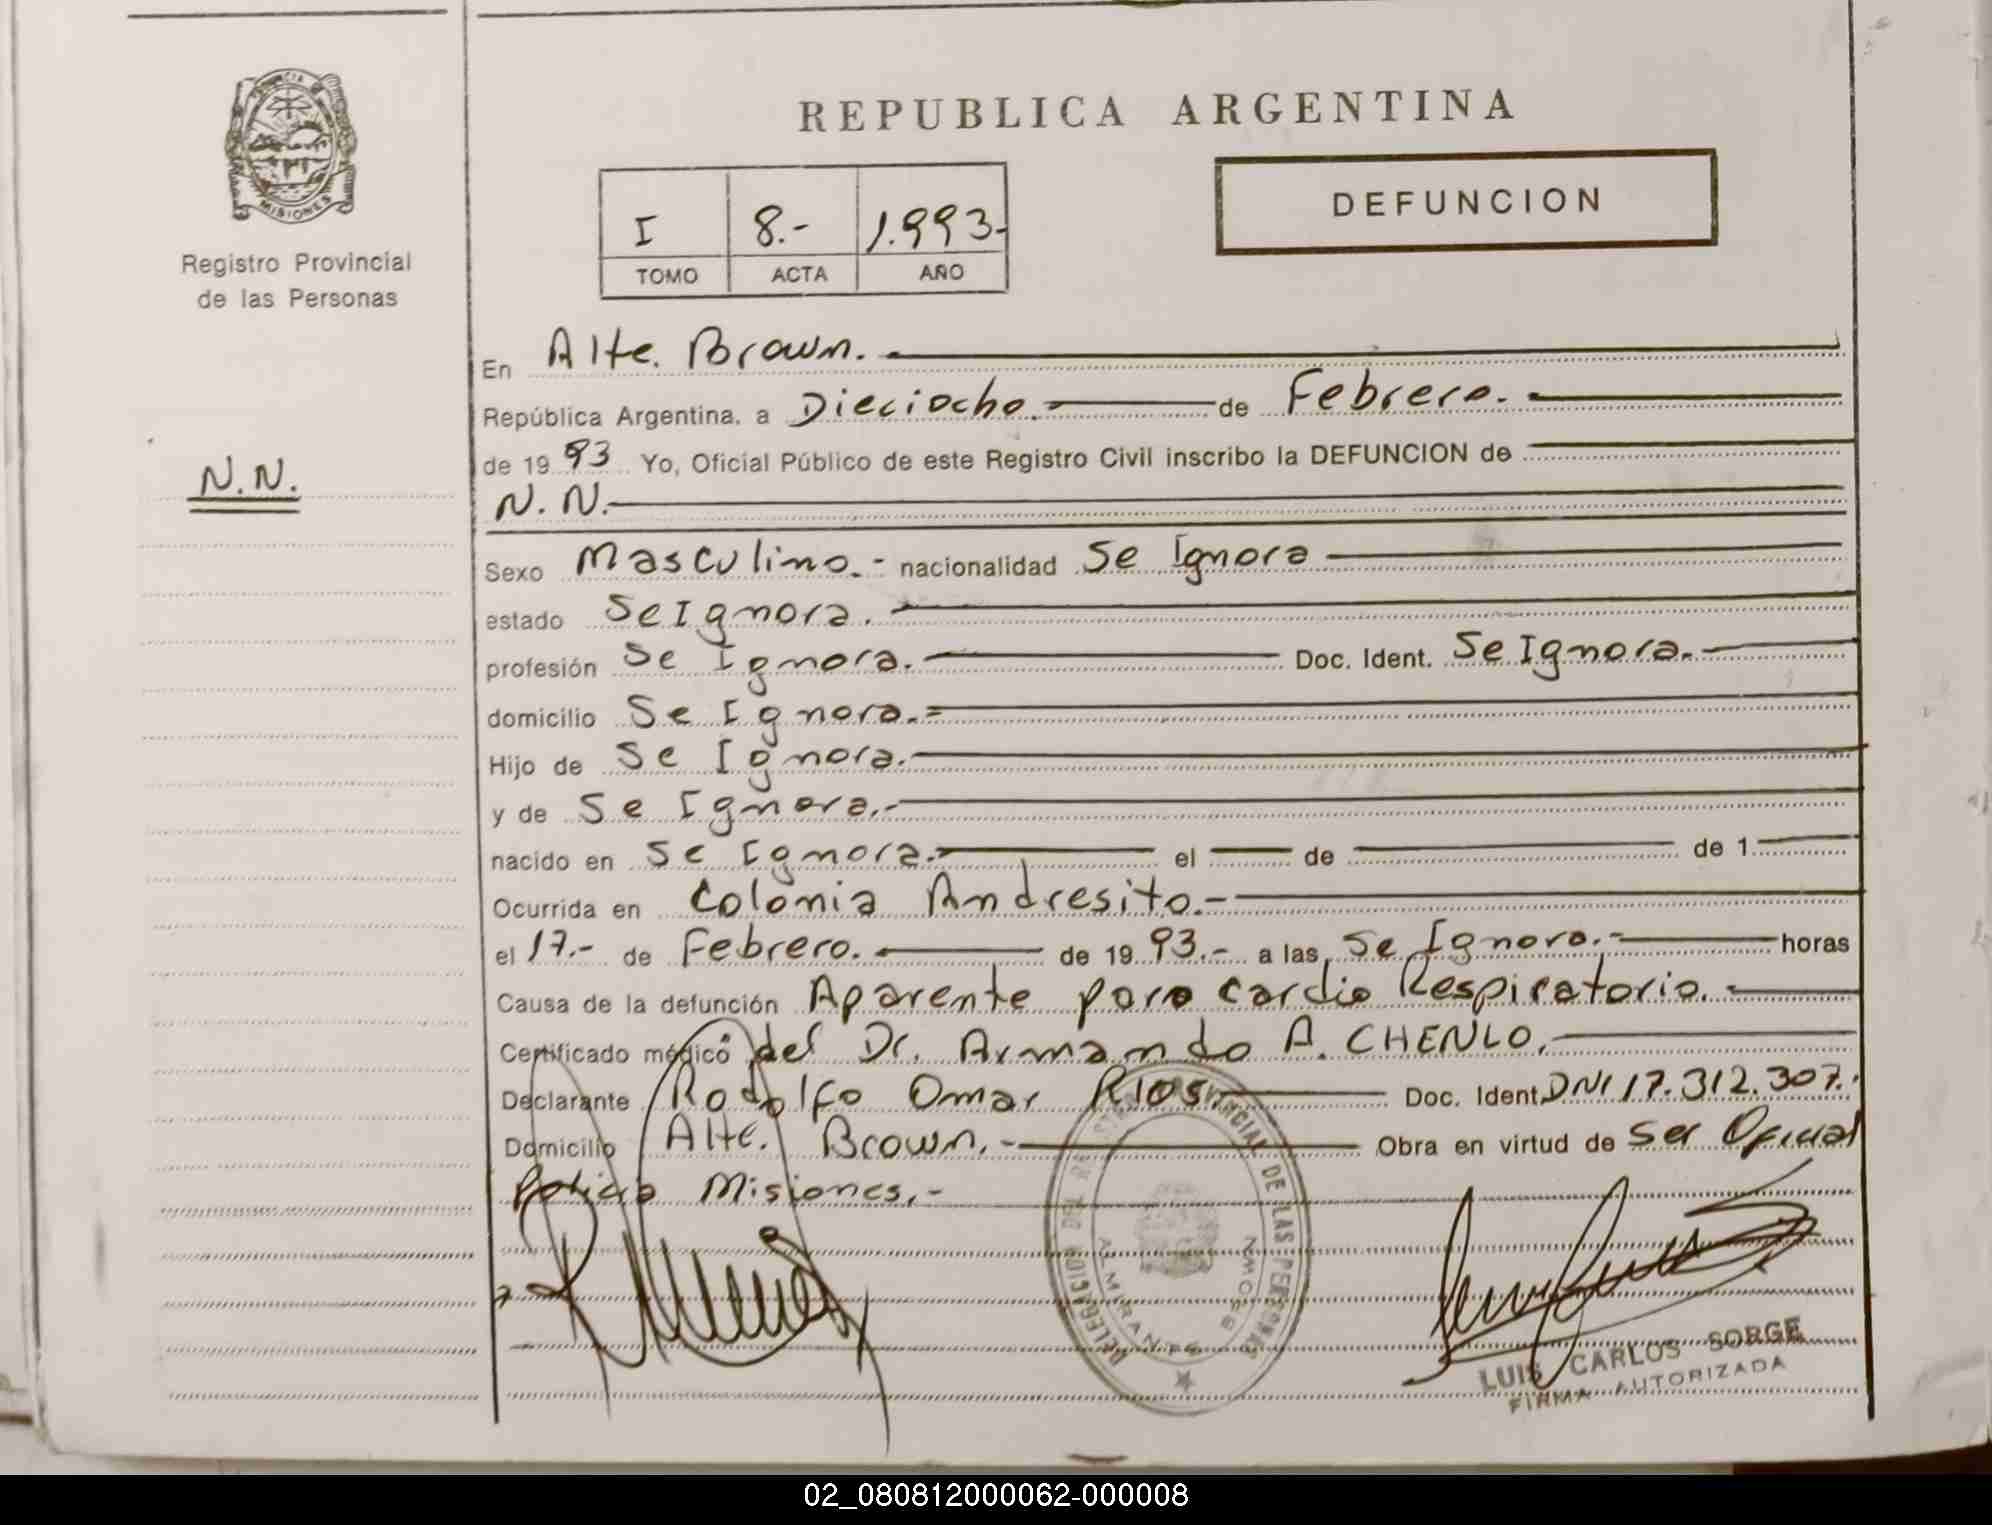 PROVINCIA
MISIONES
Registro Provincial
de las Personas
N.N.
REPUBLICA ARGENTINA
I 8.- 1.993-
TOMO ACTA AÑO
DEFUNCION
En Alte. Brown.
República Argentina, a Dieciocho. de Febrero.
de 19 93 Yo, Oficial Público de este Registro Civil inscribo la DEFUNCION de
N. N.
Sexo Masculino.- nacionalidad Se Ignora
estado Se Ignora.
profesión Se Ignora. Doc. Ident. Se Ignora.
domicilio Se Ignora.
Hijo de Se Ignora.
y de Se Ignora.-
nacido en Se Ignora. el de de 1
Ocurrida en Colonia Andresito.-
el 17.- de Febrero. de 19 93.- a las Se Ignora.- horas
Causa de la defunción Aparente paro cardio Respiratorio.
Certificado médico del Dr. Armando A. CHENLO.
Declarante Rodolfo Omar Rios. Doc. Ident. DNI 17.312.307.
Domicilio Alte. Brown.- Obra en virtud de Ser Oficial
Policia Misiones.-
DELEGACION DEL REGISTRO PROVINCIAL DE LAS PERSONAS
ALMIRANTE BROWN
LUIS CARLOS SORGE
FIRMA AUTORIZADA
02_080812000062-000008